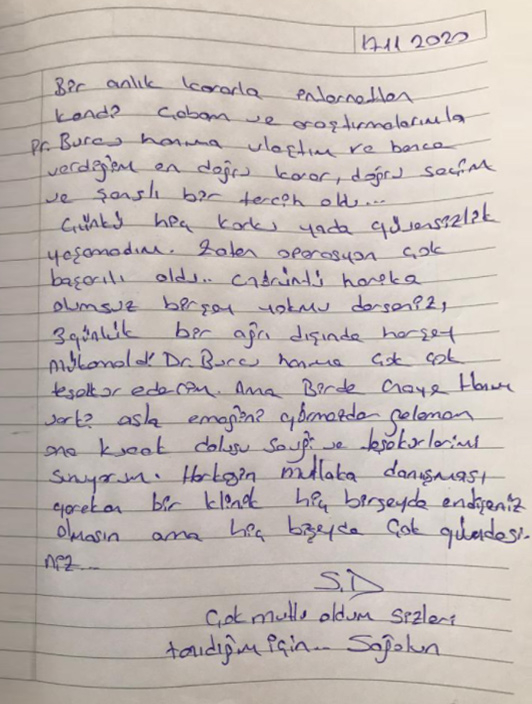 17.11 2020
Bir anlık kararla internetten
kendi çabam ve araştırmalarımla
Dr. Burcu hanıma ulaştım ve bence
verdiğim en doğru karar, doğru seçim
ve şanslı bir tercih oldu...
Çünkü hiç korku yada güvensizlik
yaşamadım. Zaten operasyon çok
başarılı oldu.. harika
olumsuz birşey yokmu derseniz,
3 günlük bir ağrı dışında herşey
mükemeldi Dr. Burcu hanıma çok çok
teşekkür ederim. Ama Birde Hanım
vart? asla emeğini
ona kucak dolusu saygı ve teşekürlerimi
sunuyorum. Herkezin mutlaka danışması
gereken bir klinik hiç birşeyde endişeniz
olmasın ama hiç bişeyde Çok güvendesi-
niz...
S.D
Çok mutlu oldum sizleri
tanıdığım için... Sağolun